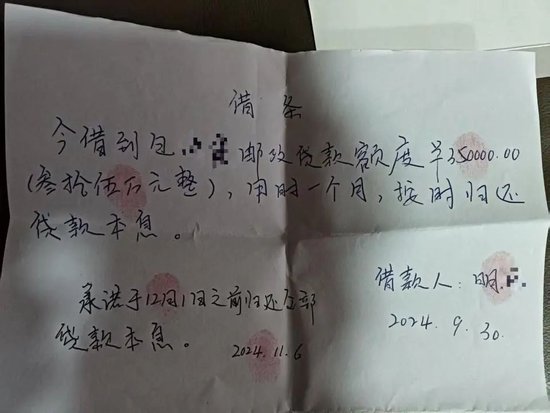 借条
今借到包 邮政贷款额度￥350000.00
(叁拾伍万元整),用时一个月,按时归还
贷款本息。
承诺于12月1日之前归还全部
贷款本息。
2024.11.6
借款人:明
2024.9.30.